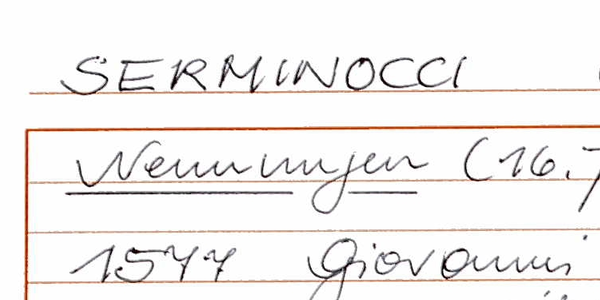 SERMINOCCI
Nenningen (16.7
1577 Giovanni